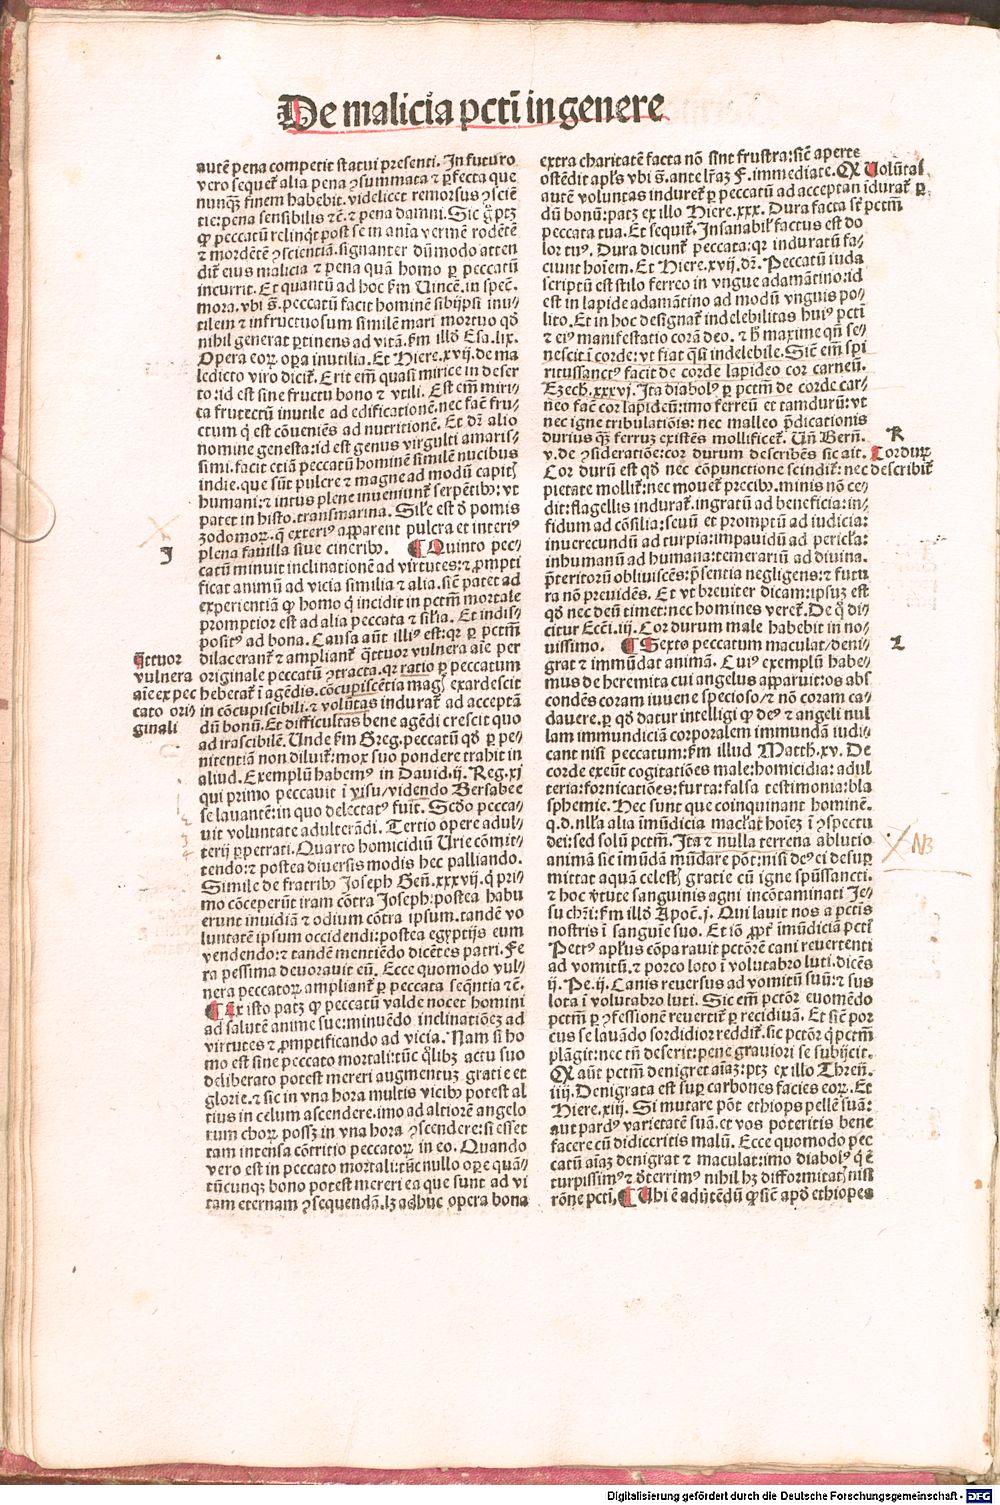 De malicia pctī in genere
autē pena competit statui presenti. In futuro
vero sequeť alia pena ꝯsummata ⁊ ꝑfecta que
nunqꝫ finem habebit. videlicet remorsus ꝯscien
tie: pena sensibilis ⁊c̄. ⁊ pena damni. Sic gͦ ptꝫ
ꝙ peccatū relinqͥt post se in aīa vermē rodētē
⁊ mordētē ꝯscientiā. signanter dūmodo atten
dit̄ eius malicia ⁊ pena quā homo ꝑ peccatū
incurrit. Et quantū ad hoc ẜm Uincē. in spec̄.
mora. vbi s̄. peccatū facit hominē sibijpsi inu⸗
tilem ⁊ infructuosum similē mari mortuo qd̄
nihil generat ꝑtinens ad vitā. ẜm illd̄ Esa. lix.
Opera eoꝝ oꝑa inutilia. Et Hiere. xvij. de ma
ledicto viro dicit̄. Erit em̄ quasi mirice in deser
to: id est sine fructu bono ⁊ vtili. Est em̄ miri⸗
ca frutectū inutile ad edificationē. nec fac̄ fru⸗
ctum qͥ est cōueniēs ad nutritionē. Et dr̄ alio
nomine genesta: id est genus virgulti amaris⸗
simi. facit etiā peccatū hominē similē nucibus
indie. que sūt pulcre ⁊ magne ad modū capitꝭ
humani: ⁊ intus plene inueniunt̄ serpētibꝰ: vt
patet in histo. transmarina. Sil̄e est d̄ pomis
zodomoꝝ. q̄ exteriꝰ apparent pulcra et interiꝰ
plena fauilla siue cineribꝰ. ¶ Quinto pec⸗
J
catū minuit inclinationē ad virtutes: ⁊ ꝓmpti
ficat animū ad vicia similia ⁊ alia. sic̄ patet ad
experientiā ꝙ homo qͥ incidit in pctm̄ mortale
promptior est ad alia peccata ⁊ sil̄ia. Et indis⸗
positꝰ ad bona. Causa aūt illiꝰ est: qꝛ ꝑ pctm̄
dilacerant̄ ⁊ ampliant̄ q̄ttuor vulnera aīe per
q̄ttuor
vulnera
aīe ex pec
cato ori⸗
ginali
originale peccatū ꝯtracta. qꝛ ratio ꝑ peccatum
hebetat̄ ī agēdis. cōcupiscētia magꝭ exardescit
in cōcupiscibili. ⁊ volūtas indurat̄ ad acceptā
dū bonū. Et difficultas bene agēdi crescit quo
ad irascibilē. Unde ẜm Greg. peccatū qd̄ ꝑ pe⸗
nitentiā non diluit̄: mox suo pondere trahit in
aliud. Exemplū habemꝰ in Dauid. ij. Reg. xj
qui primo peccauit ī visu / videndo Bersabee
se lauantē: in quo delectatꝰ fuit. Scd̄o pecca⸗
uit voluntate adulterādi. Tertio opere adul⸗
terij ꝑpetrati. Quarto homicidiū Urie cōmit⸗
tendo: ⁊ postea diuersis modis hec palliando.
Simile de fratribꝰ Joseph Gen̄. xxxvij. qͥ pri⸗
mo cōceperūt iram cōtra Joseph: postea habu
erunt inuidiā ⁊ odium cōtra ipsum. tandē vo
luntatē ipsum occidendi: postea egyptijs eum
vendendo: ⁊ tandē mentiēdo dicētes patri. Fe
ra pessima deuorauit eū. Ecce quomodo vul⸗
nera peccatoꝝ ampliant̄ ꝑ peccata seq̄ntia ⁊c̄.
¶ Ex isto patꝫ ꝙ peccatū valde nocet homini
ad salutē anime sue: minuēdo inclinatiōeꝫ ad
virtutes ⁊ ꝓmptificando ad vicia. Nam si ho
mo est sine peccato mortali: tūc qͦlibꝫ actu suo
deliberato potest mereri augmentuꝫ gratie et
glorie. ⁊ sic in vna hora multis vicibꝰ potest al
tius in celum ascendere. imo ad altiorē angelo
rum choꝝ possꝫ in vna hora ꝯscendere: si esset
tam intensa cōtritio peccatoꝝ in eo. Quando
vero est in peccato mortali: tūc nullo oꝑe quā⸗
tūcunqꝫ bono potest mereri ea que sunt ad vi
tam eternam ꝯsequendā. lꝫ adhuc opera bona
extra charitatē facta nō sint frustra: sic̄ aperte
ostēdit apl̄s vbi s̄. ante lr̄aꝫ F. immediate. Qꝛ
Volūtas
indurat̄ ꝑ
pctm̄
autē voluntas induret̄ ꝑ peccatū ad acceptan
dū bonū: patꝫ ex illo Hiere. xxx. Dura facta st̄
peccata tua. Et sequit̄. Insanabil̄ factus est do
lor tuꝰ. Dura dicunt̄ peccata: qꝛ induratū fa⸗
ciunt hoīem. Et Hiere. xvij. dr̄. Peccatū iuda
scriptū est stilo ferreo in vngue adamātino: id
est in lapide adamātino ad modū vnguis po⸗
lito. Et in hoc designat̄ indelebilitas huiꝰ pcti
⁊ eiꝰ manifestatio corā deo. ⁊ h̄ maxime qn̄ se⸗
nescit ī corde: vt fiat q̄si indelebile. Sic̄ em̄ spi
ritussanctꝰ facit de corde lapideo cor carneū.
Ezech. xxxvj. Ita diabolꝰ ꝑ pctm̄ de corde car⸗
neo fac̄ cor lapideū: imo ferreū et tamdurū: vt
nec igne tribulatiōis: nec malleo p̄dicationis
durius qꝫ ferruꝫ existēs mollificet̄. Un̄ Bern̄.
K
Cor duꝝ
describit̄
v. de ꝯsideratiōe: cor durum describēs sic ait.
Cor durū est qd̄ nec cōpunctione scindit̄: nec
pietate mollit̄: nec mouet̄ precibꝰ. minis nō ce⸗
dit: flagellis indurat̄. ingratū ad beneficia: in⸗
fidum ad cōsilia: seuū et promptū ad iudicia:
inuerecundū ad turpia: impauidū ad pericl̄a:
inhumanū ad humana: temerariū ad diuina.
p̄teritorū obliuiscēs: p̄sentia negligens: ⁊ futu
ra nō preuidēs. Et vt breuiter dicam: ipsuꝫ est
qd̄ nec deū timet: nec homines veret̄. De qͦ di
citur Ecc̄i. iij. Cor durum male habebit in no⸗
uissimo. ¶ Sexto peccatum maculat / deni⸗
L
grat ⁊ immūdat animā. Cuiꝰ exemplū habe⸗
mus de heremita cui angelus apparuit: os abs
condēs coram iuuene specioso / ⁊ nō coram ca⸗
dauere. ꝑ qd̄ datur intelligi ꝙ deꝰ ⁊ angeli nul
lam immundiciā corporalem immundā iudi⸗
cant nisi peccatum: ẜm illud Matth. xv. De
corde exeūt cogitatiōes male: homicidia: adul
teria: fornicatiōes: furta: falsa testimonia: bla
sphemie. Hec sunt que coinquinant hominē.
q. d. nll̄a alia imūdicia macl̄at hoīeꝫ ī ꝯspectu
dei: sed solū pctm̄. Ita ⁊ nulla terrena ablutio
NB
animā sic īmūdā mūdare pōt: nisi deꝰ ei desuꝑ
mittat aquā celestꝭ gratie cū igne spūssancti.
⁊ hoc v̄tute sanguinis agni incōtaminati Je⸗
su chr̄i: ẜm illd̄ Apoc̄. j. Qui lauit nos a pctis
nostris ī sanguīe suo. Et iō ꝓpt̄ imūdiciā pcti
Petrꝰ apl̄us cōparauit pctōrē cani reuertenti
ad vomitū. ⁊ porco loto ī volutabro luti. dicēs
ij. Pe. ij. Canis reuersus ad vomitū suū: ⁊ sus
lota ī volutabro luti. Sic em̄ pctōr euomēdo
pctm̄ ꝑ ꝯfessionē reuertit̄ ꝑ recidiuā. Et sic̄ por
cus se lauādo sordidior reddit̄. sic pctōr qͥ pctm̄
plāgit: nec tn̄ deserit: pene grauiori se subijcit.
Qꝛ aūt pctm̄ denigret aīaꝫ: ptꝫ ex illo Thren̄.
iiij. Denigrata est suꝑ carbones facies eoꝝ. Et
Hiere. xiij. Si mutare pōt ethiops pellē suā:
aut pardꝰ varietatē suā. et vos poteritis bene
facere cū didiceritis malū. Ecce quomodo pec
catū aīaꝫ denigrat ⁊ maculat: imo diabolꝰ qͥ ē
turpissimꝰ ⁊ deterrimꝰ nihil hꝫ difformitatꝭ nisi
rōne pcti. ¶ Ubi ē aduertēdū ꝙ sic̄ apd̄ ethiopes
Digitalisierung gefördert durch die Deutsche Forschungsgemeinschaft - DFG